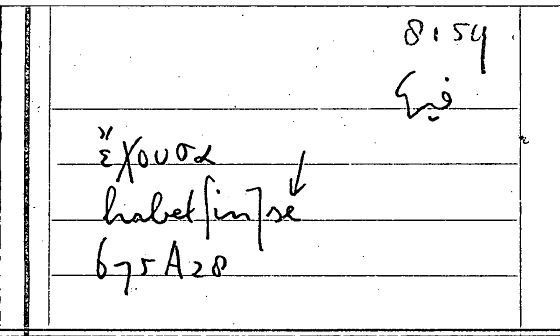 8:54
ἔχουσα
habet [in] se
675A28